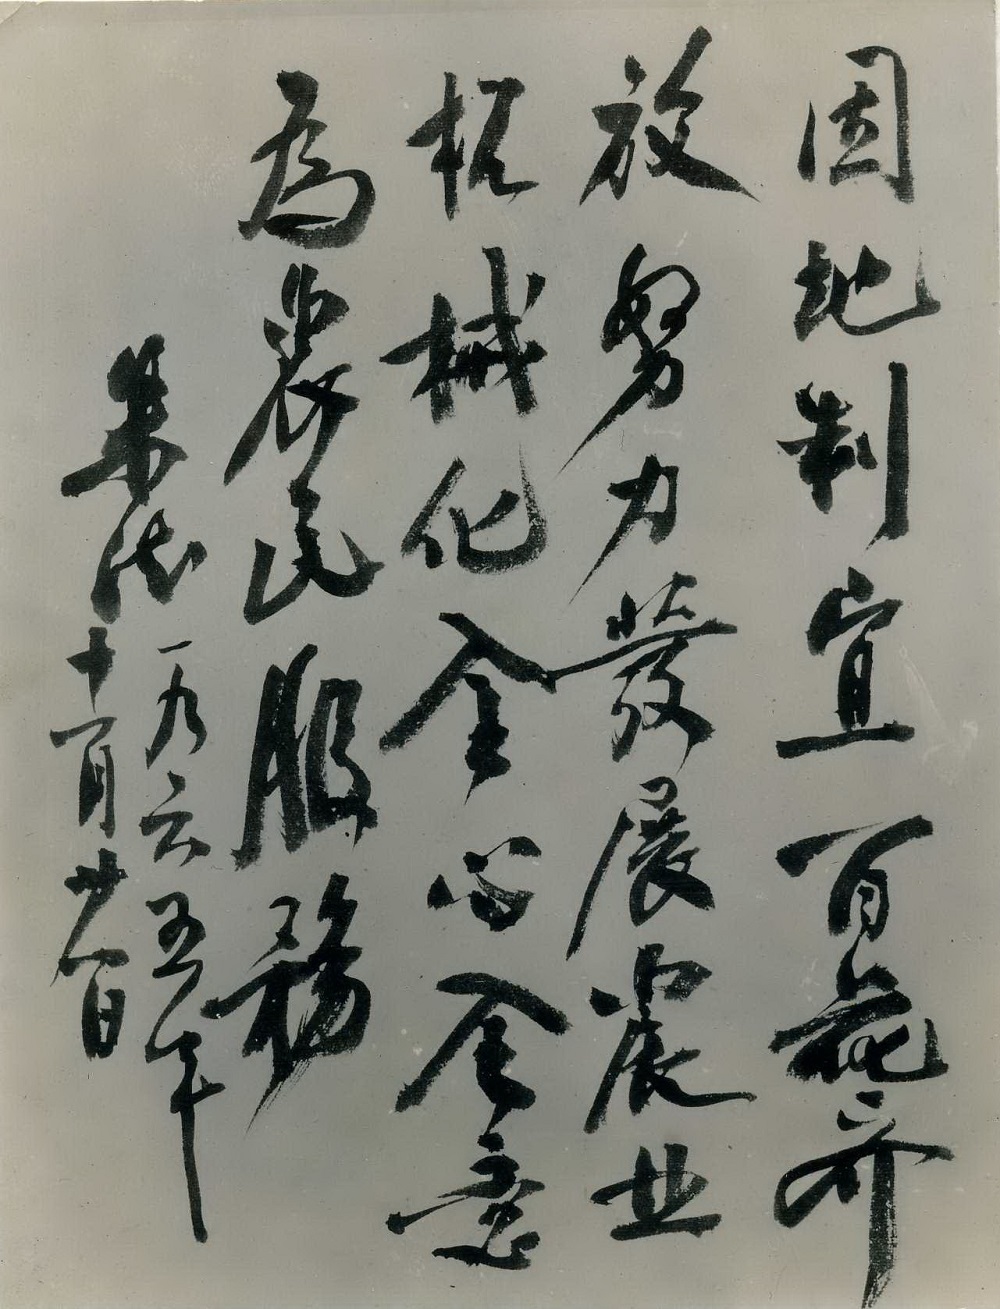 因地制宜百花齐
放努力發展農业
机械化全心全意
為農民服務
朱德
一九六五年
十一月廿八日